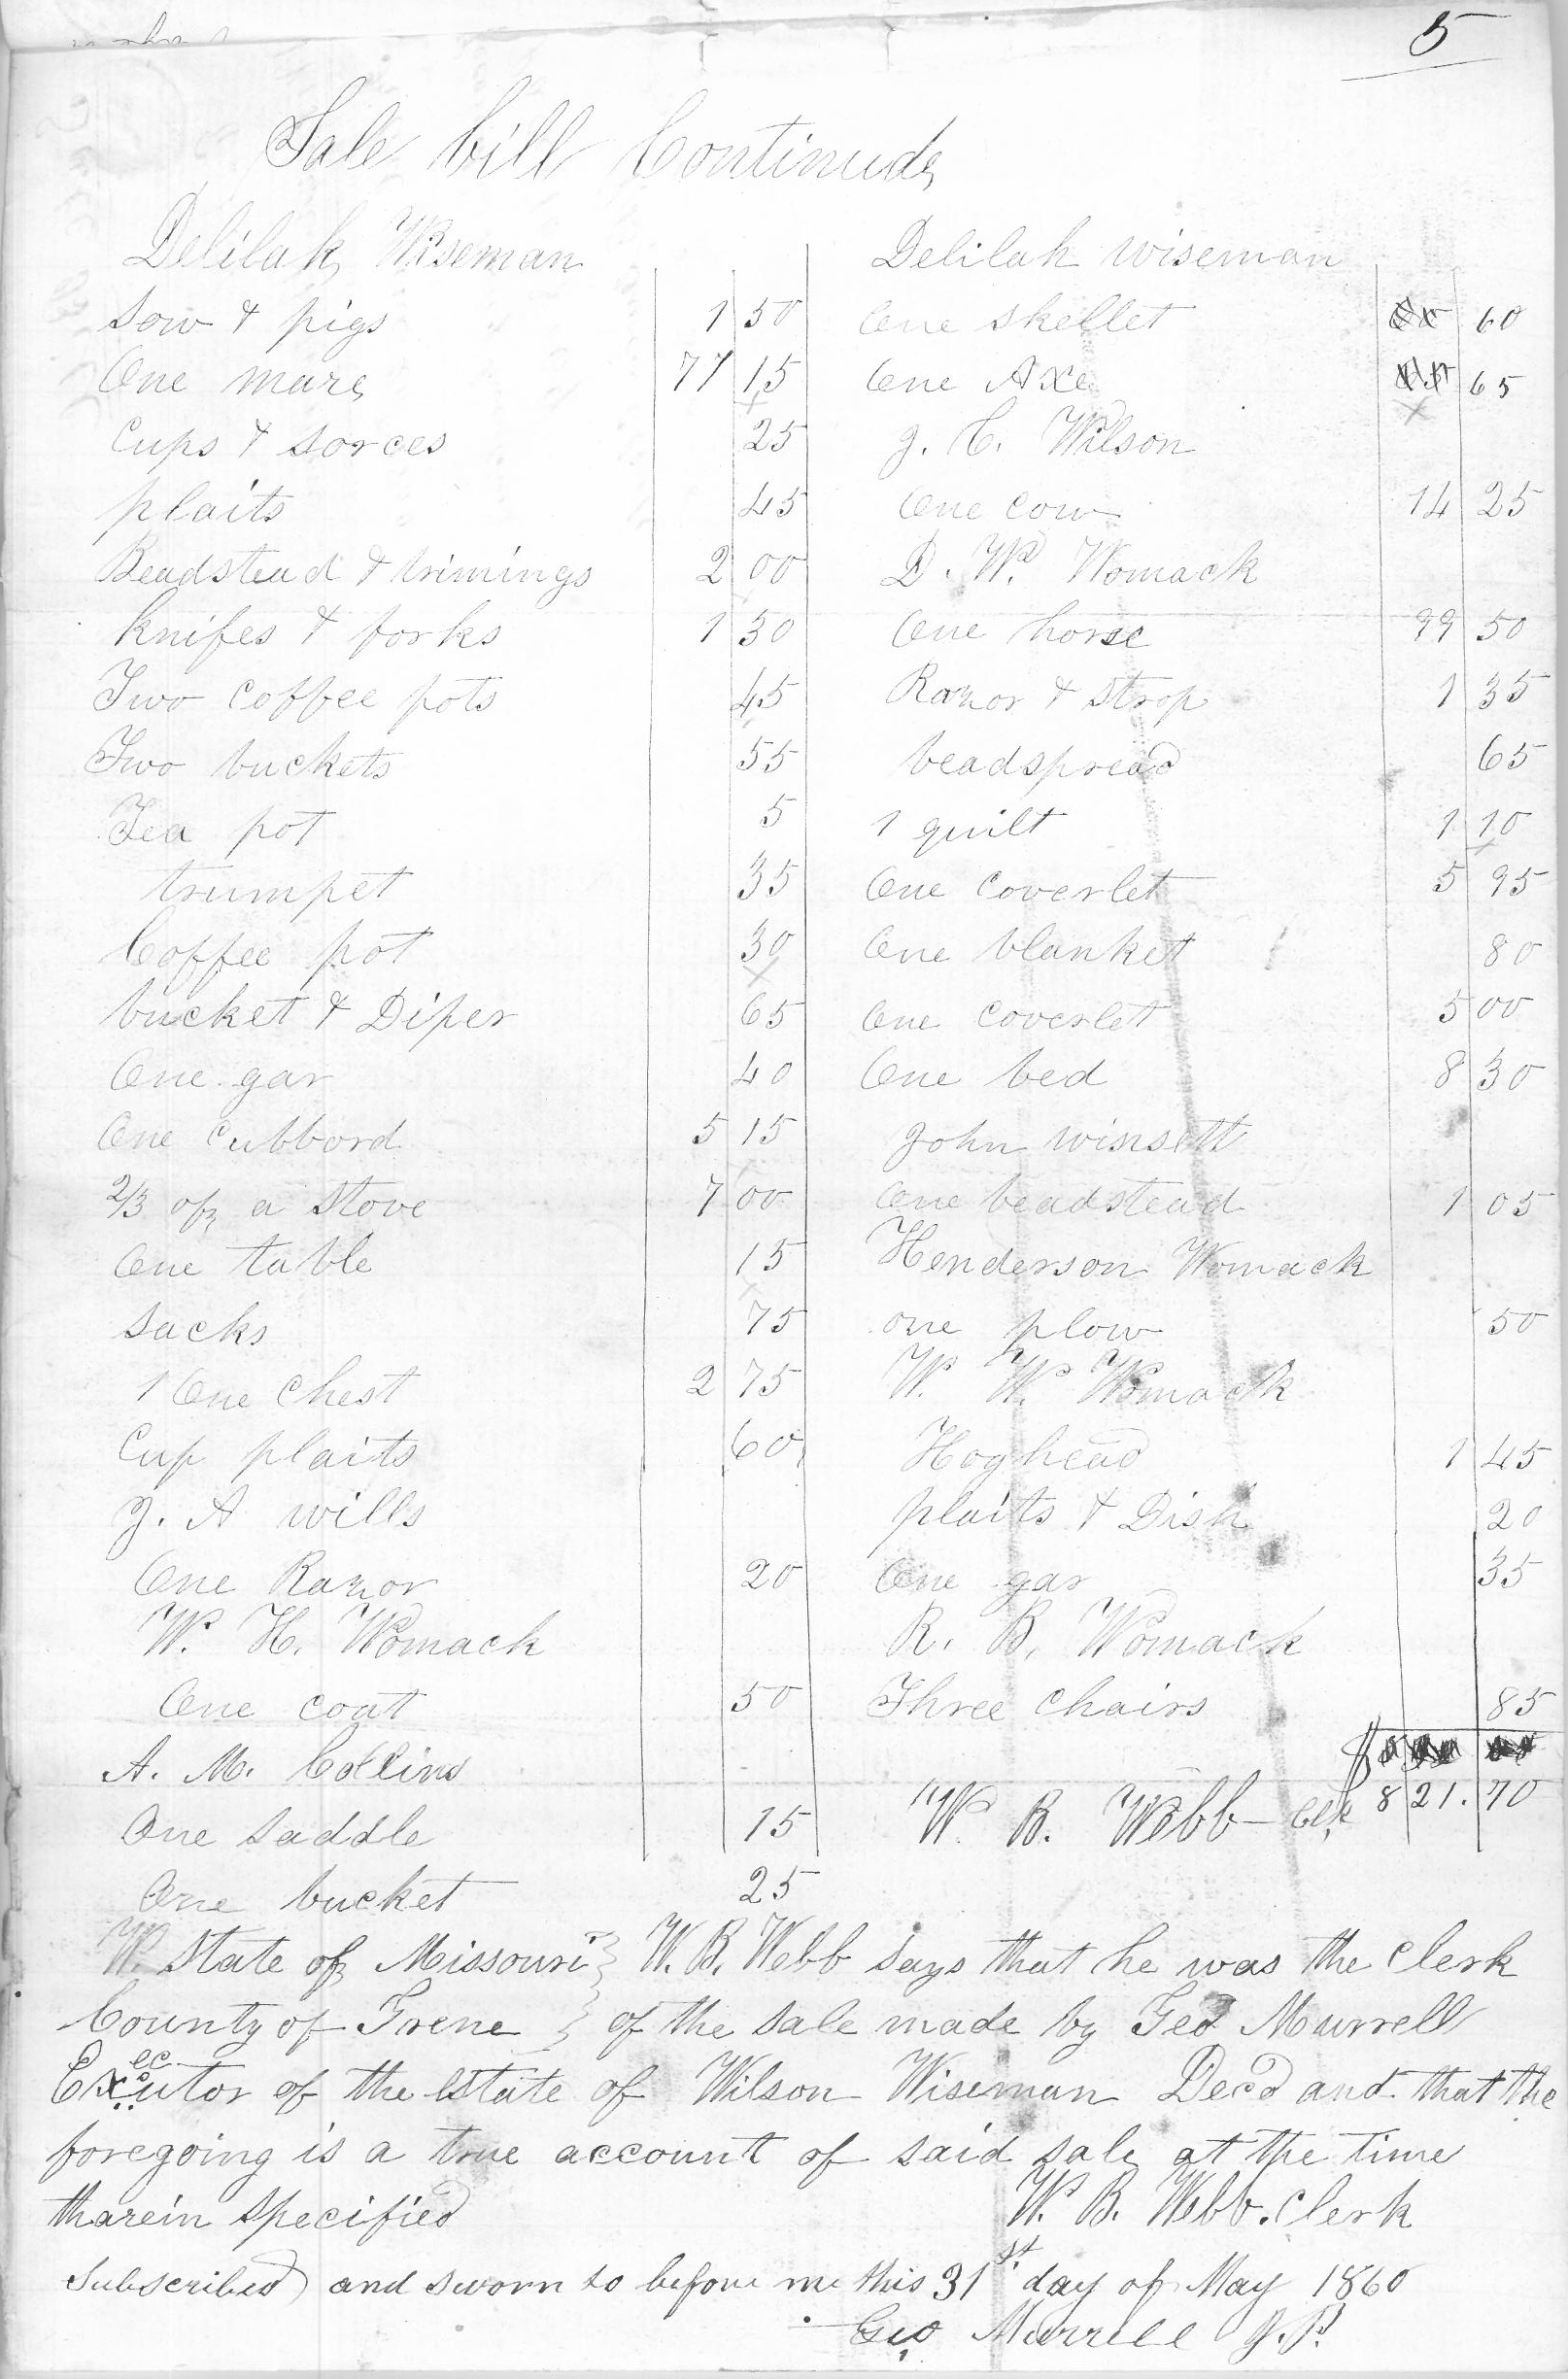 5
Sale bill Continued
Delilah Wiseman
Sow & pigs 1 50
One mare 77 15
Cups & sorces 25
plaits 45
Beadstead & trimings 2 00
knifes & forks 1 30
Two coffee pots 45
Two buckets 55
Tea pot 5
trumpet 35
Coffee pot 30
bucket & Diper 65
One gar 40
One cubbord 5 15
2/3 of a Stove 7 00
One table 15
Sacks 75
1 One chest 2 75
Cup plaits 60
J. A wills
One Razor 20
W. H. Womack
One coat 50
A. M. Collins
One Saddle 15
One bucket 25
Delilah wiseman
One skellet 60
One Axe 65
J. C. Wilson
One cow 14 25
D. W. Womack
One horse 99 50
Razor & Strop 1 35
beadspread 65
1 quilt 1 10
One coverlet 5 95
One blanket 80
One coverlet 5 00
One bed 8 30
John winsett
One beadstead 1 05
Henderson Womack
one plow 50
W. W. Womack
Hoghead 1 45
plaits & Dish 20
One gar 35
R. B. Womack
Three chairs 85
W. B. Webb Clk $ 821.70
W. State of Missouri } W. B. Webb says that he was the clerk
County of Grene } of the sale made by Geo Murrell
Executor of the Estate of Wilson Wiseman Decd and that the
foregoing is a true account of said sale at the time
tharein specified
W. B. Webb. Clerk
Subscribed and sworn to before me this 31st day of May 1860
Geo Murrell J.P.